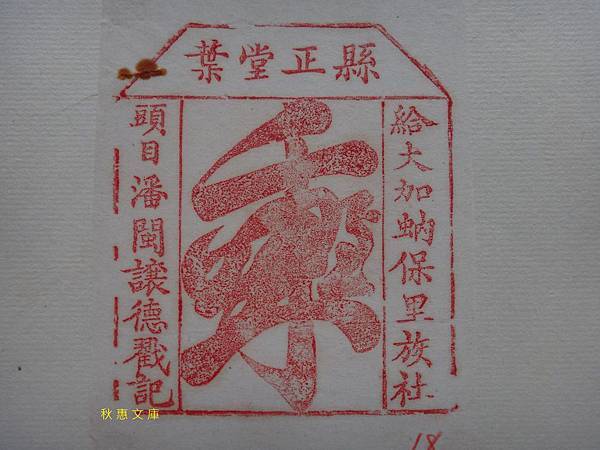 縣正堂葉
給大加蚋保里族社
頭目潘閩讓德戳記
秋惠文庫
18